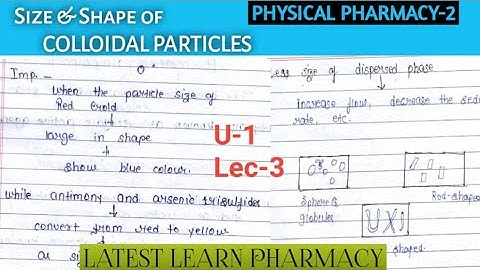 SIZE & SHAPE OF
COLLOIDAL PARTICLES
PHYSICAL PHARMACY-2
Imp. -
when the particle size of
Red Gold
large in shape
show blue colour.
while antimony and arsenic trisulfides
convert from red to yellow
as si
Less size of dispersed phase
increase flow, decrease the sedi
rate, etc.
U-1
Lec-3
Sphere &
globules
Rod-shaped
shaped
LATEST LEARN PHARMACY